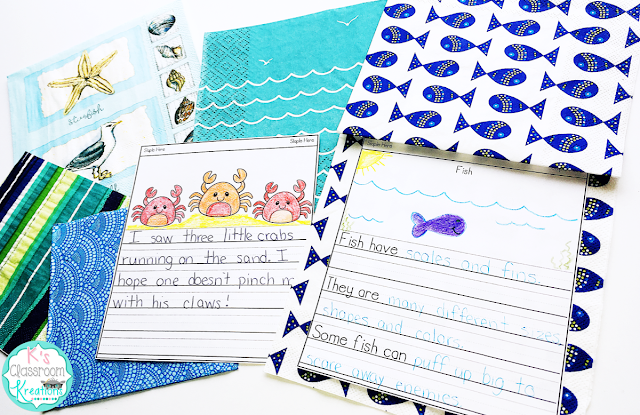 starfish
Staple Here
Staple Here
I saw three little crabs
running on the sand. I
hope one doesn't pinch m
with his claws!
Staple Here
Fish
Fish have scales and fins.
They are many different sizes
shapes and colors.
Some fish can puff up big to
scare away enemies.
K's
Classroom
Kreations